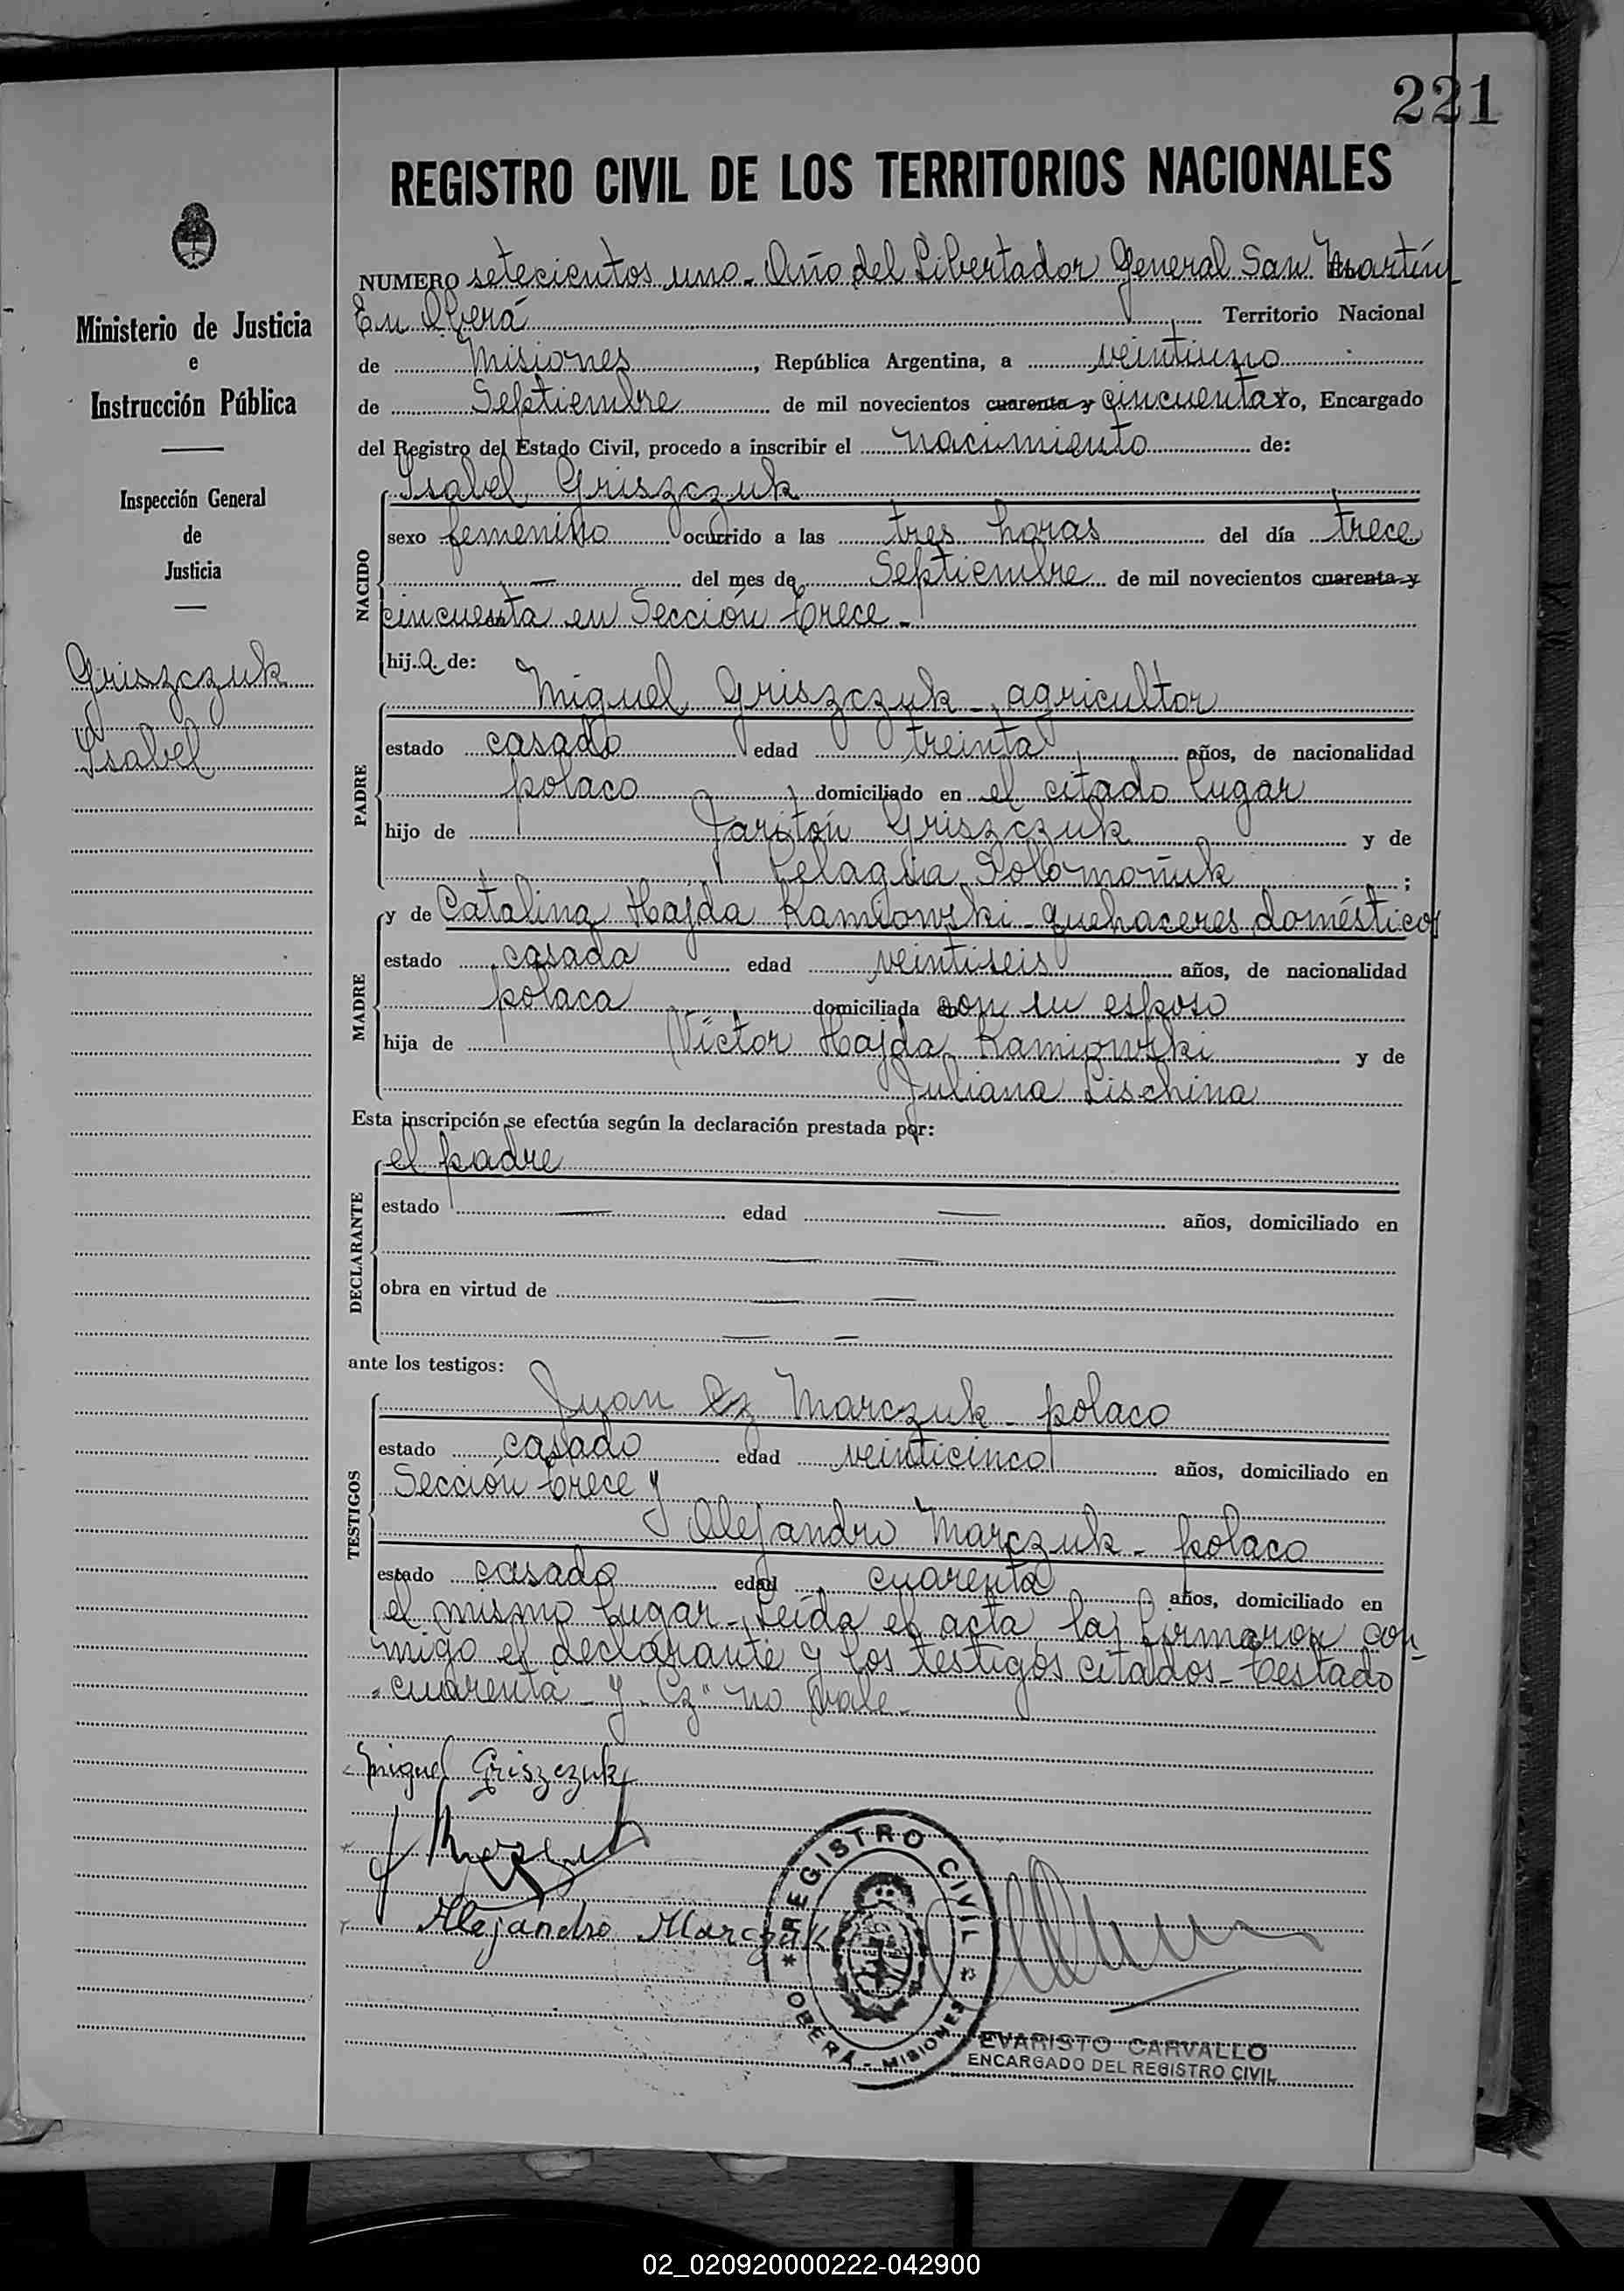 221
REGISTRO CIVIL DE LOS TERRITORIOS NACIONALES
Ministerio de Justicia
e
Instrucción Pública
Inspección General
de
Justicia
Griszczuk
Isabel
NUMERO setecientos uno - Año del Libertador General San Martín
En Oberá Territorio Nacional
de Misiones, República Argentina, a veintiuno
de Septiembre de mil novecientos cuarenta y cincuenta yo, Encargado
del Registro del Estado Civil, procedo a inscribir el nacimiento de:
NACIDO
Isabel Griszczuk
sexo femenino ocurrido a las tres horas del día trece
— del mes de Septiembre de mil novecientos cuarenta y
cincuenta en Sección trece -
hij.a de:
PADRE
Miguel Griszczuk - agricultor
estado casado edad treinta años, de nacionalidad
polaco domiciliado en el citado lugar
hijo de Jaritón Griszczuk y de
Pelagia Solomoñuk ;
MADRE
y de Catalina Hajda Kamiowski - quehaceres domésticos
estado casada edad veintiseis años, de nacionalidad
polaca domiciliada con su esposo
hija de Víctor Hajda Kamiowski y de
Juliana Lischina
Esta inscripción se efectúa según la declaración prestada por:
DECLARANTE
el padre
estado — edad — años, domiciliado en
— —
obra en virtud de — —
— —
ante los testigos:
TESTIGOS
Juan Cz Marczuk - polaco
estado casado edad veinticinco años, domiciliado en
Sección trece y
Alejandro Marczuk - polaco
estado casado edad cuarenta años, domiciliado en
el mismo lugar - Leída el acta la firmaron con-
migo el declarante y los testigos citados - Testado
"cuarenta - y - Cz" no vale -
Miguel Griszczuk
Alejandro Marczuk
REGISTRO CIVIL
* OBERÁ - MISIONES *
EVARISTO CARVALLO
ENCARGADO DEL REGISTRO CIVIL
02_020920000222-042900